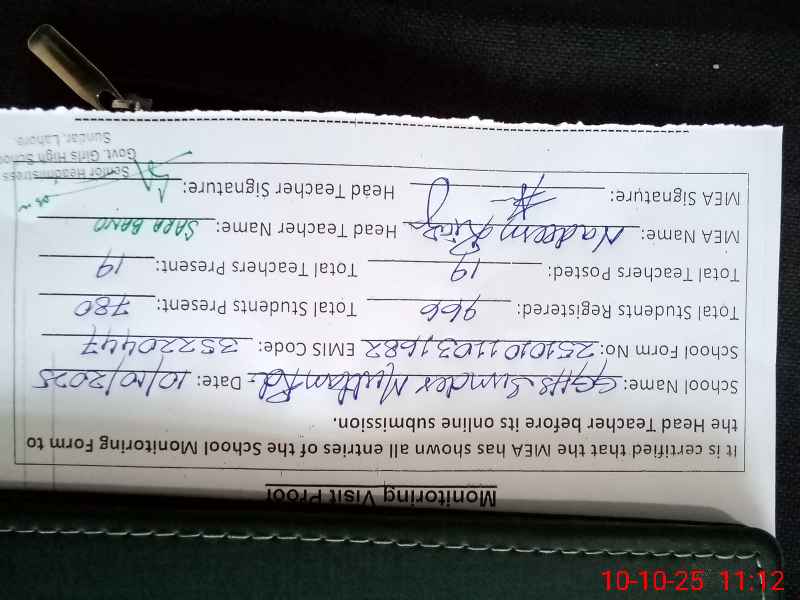 Monitoring Visit Proof
It is certified that the MEA has shown all entries of the School Monitoring Form to
the Head Teacher before its online submission.
School Name: GGHS Sunder Multan Rd. Date: 10/10/2025
School Form No: 2510101103,1682 EMIS Code: 35220447
Total Students Registered: 966 Total Students Present: 780
Total Teachers Posted: 19 Total Teachers Present: 19
MEA Name: Nadeem Riaz Head Teacher Name: SARA BANO
MEA Signature: Head Teacher Signature:
Senior Headmistress
Govt. Girls High School
Sundar, Lahore.
10-10-25 11:12